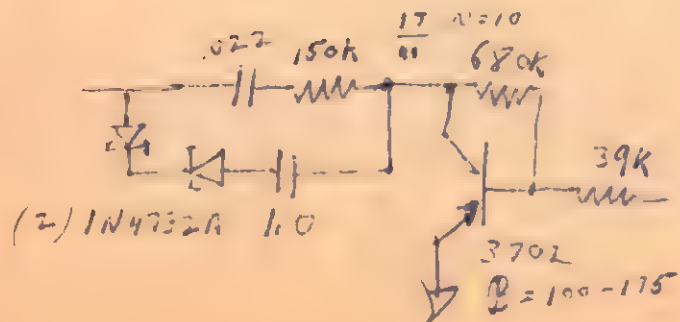 .022 150k 17/11 N=10
680k
39K
(2) 1N4732A 1.0
3702
=100-175